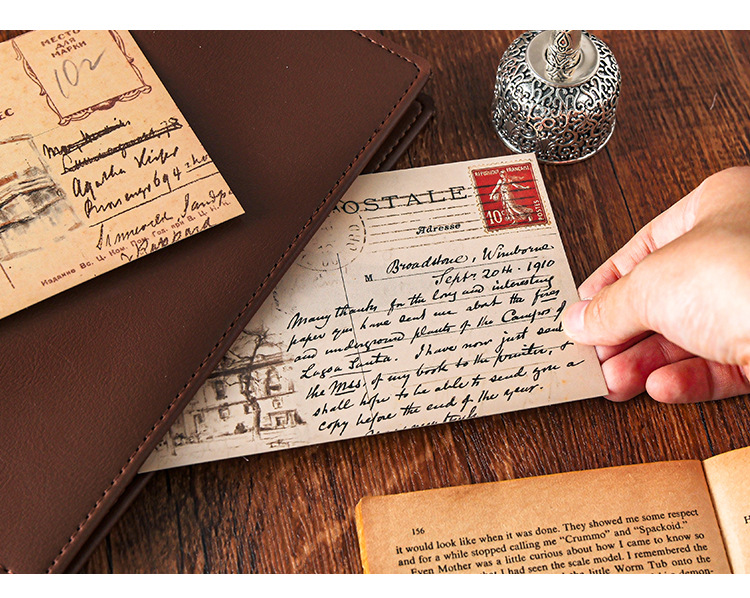 МЕСТО
ДЛЯ
МАРКИ
102
Agatha
Издание Вс. Ц. Ком. Пом. Гол. ВЦИК
OSTALE
Adresse
REPUBLIQUE FRANÇAISE
10
POSTES
M
Broadstone, Wimborne
Sept. 20th. 1910
Many thanks for the long and interesting
paper you have sent me about the fires
and underground plants of the Campos of
Lagoa Santa. I have now just sent
the MSS. of my book to the printer, &
shall hope to be able to send you a
copy before the end of the year.
156
it would look like when it was done. They showed me some respect
and for a while stopped calling me “Crummo” and “Spackoid.”
Even Mother was a little curious about how I came to know so
that I had seen the scale model. I remembered the
the little Worm Tub onto the
demon-
H